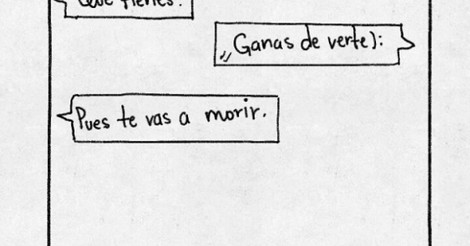 ¿Qué tienes?
Ganas de verte ):
Pues te vas a morir.